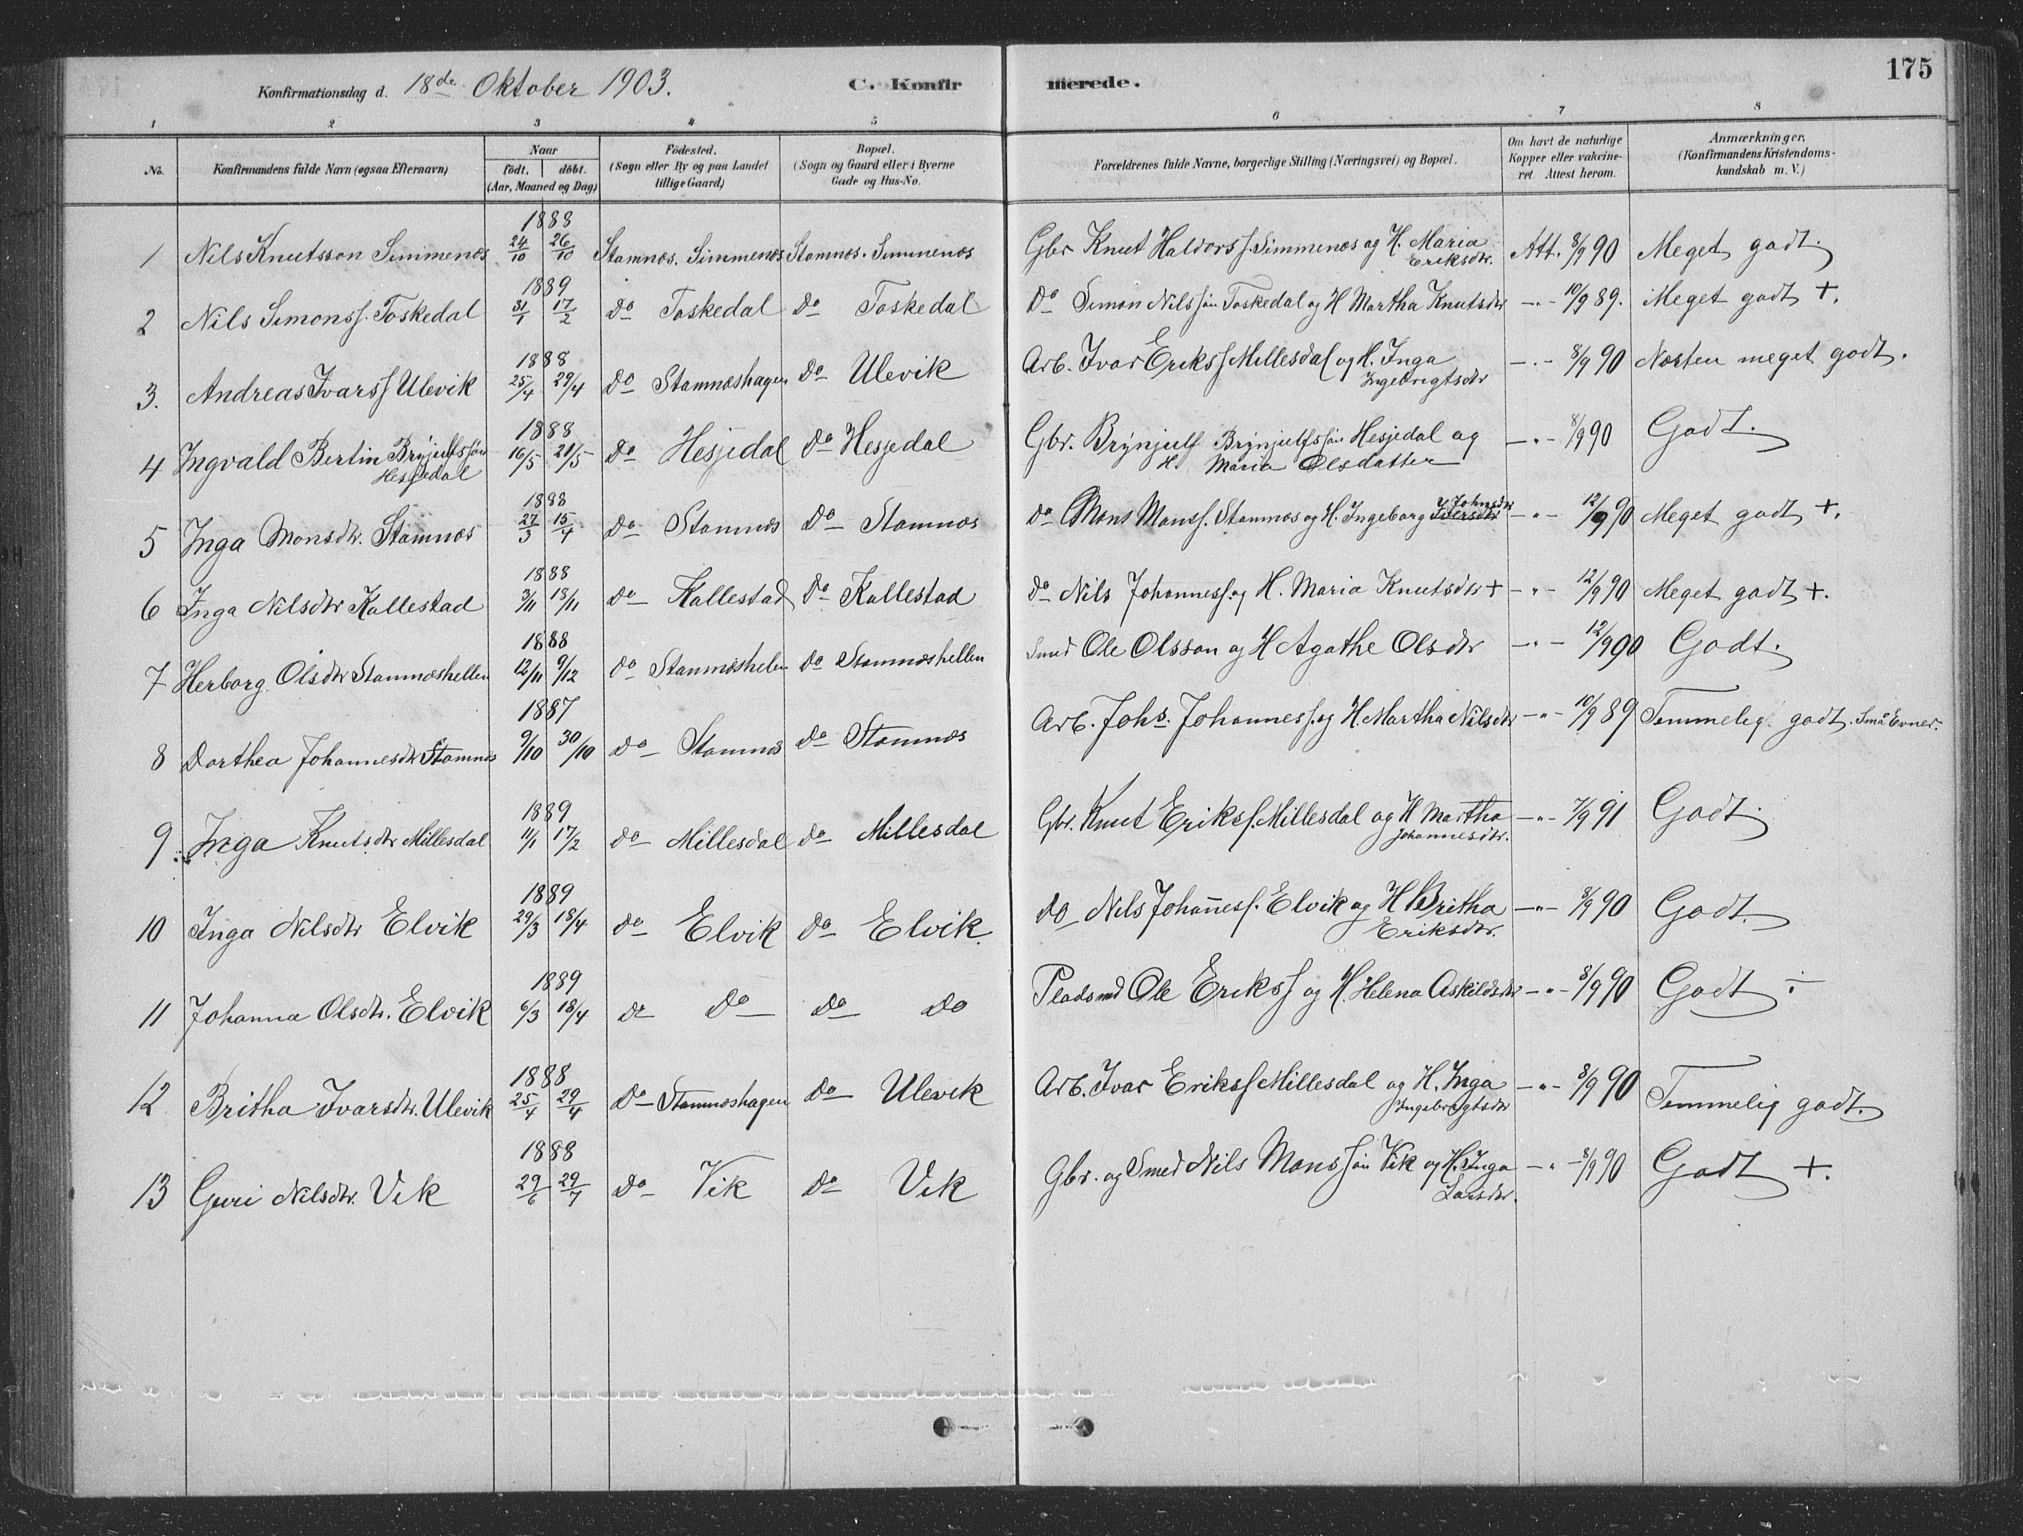 175
Konfirmationsdag d. 18de Oktober 1903. C. Konfirmerede.
1 2 3 4 5 6 7 8
No. Konfirmandens fulde Navn (ogsaa Efternavn) Naar födt, döbt. (Aar, Maaned og Dag) Födested. (Sogn eller By og paa Landet tillige Gaard) Bopæl. (Sogn og Gaard eller i Byerne Gade og Hus-No. Forældrenes fulde Navne, borgerlige Stilling (Næringsvei) og Bopæl. Om havt de naturlige Kopper eller vakcineret. Attest herom. Anmærkninger. (Konfirmandens Kristendomskundskab m. V.)
1 Nils Knutsson Simmenæs 1888 24/10 26/10 Stamnæs. Simmenæs Stamnæs. Simmenæs Gbr Knut Haldorsf. Simmenæs og H. Maria Eriksdtr. Att. 8/9 90 Meget godt.
2 Nils Simonsf. Toskedal 1889 31/1 17/2 do Toskedal do Toskedal Do Simon Nilssøn Toskedal og H Martha Knutsdtr -"- 10/9 89. Meget godt +.
3. Andreas Ivarsf Ulevik 1888 25/4 29/4 do Stamnæshagen do Ulevik Arb. Ivar Eriksf Millesdal og H. Inga Ingebrigtsdtr -"- 8/9 90 Næsten meget godt.
4 Ingvald Bertin Brynjulfssøn Hesjedal 1888 16/5 21/5 do Hesjedal do Hesjedal Gbr. Brynjulf Brynjulfssøn Hesjedal og H. Maria Olsdatter -"- 8/9 90 Godt.
5 Inga Monsdtr. Stamnæs 1888 27/3 15/4 do Stamnæs do Stamnæs do Mons Monsf. Stamnæs og H. Ingeborg Johnsdtr -"- 12/9 90 Meget godt +.
6 Inga Nilsdtr Kallestad 1888 3/11 18/11 do Kallestad do Kallestad do Nils Johannesf. og H. Maria Knutsdtr + -"- 12/9 90 Meget godt +.
7 Herborg Olsdtr Stamnæshellen 1888 12/11 9/12 do Stamnæshelen do Stamnæshellen Smed Ole Olsson og H Agathe Olsdtr -"- 12/9 90 Godt.
8 Dorthea Johannesdtr Stamnæs 1887 9/10 30/10 do Stamnæs do Stamnæs Arb. Johs. Johannesf. og H. Martha Nilsdtr -"- 10/9 89 Temmelig godt. Små Evner.
9. Inga Knutsdtr Millesdal 1889 11/1 17/2 do Millesdal do Millesdal Gbr. Knut Eriksf. Millesdal og H Martha Johannesdtr. -"- 7/9 91 Godt.
10 Inga Nilsdtr Elvik 1889 29/3 18/4 do Elvik do Elvik. do Nils Johan̄esf. Elvik og H Britha Eriksdtr. -"- 8/9 90 Godt.
11 Johanna Olsdtr. Elvik 1889 6/3 18/4 do do do do Pladsmd Ole Eriksf og H. Helena Askildsdtr -"- 8/9 90 Godt ÷
12 Britha Ivarsdtr. Ulevik 1888 25/4 29/4 do Stamnæshagen do Ulevik Arb. Ivar Eriksf Millesdal og H. Inga Ingebrigtsdtr -"- 8/9 90 Temmelig godt.
13 Guri Nilsdtr. Vik 1888 29/6 29/7 do Vik do Vik Gbr. og Smed Nils Monssøn Vik og H. Inga Larsdtr. -"- 8/9 90 Godt +.